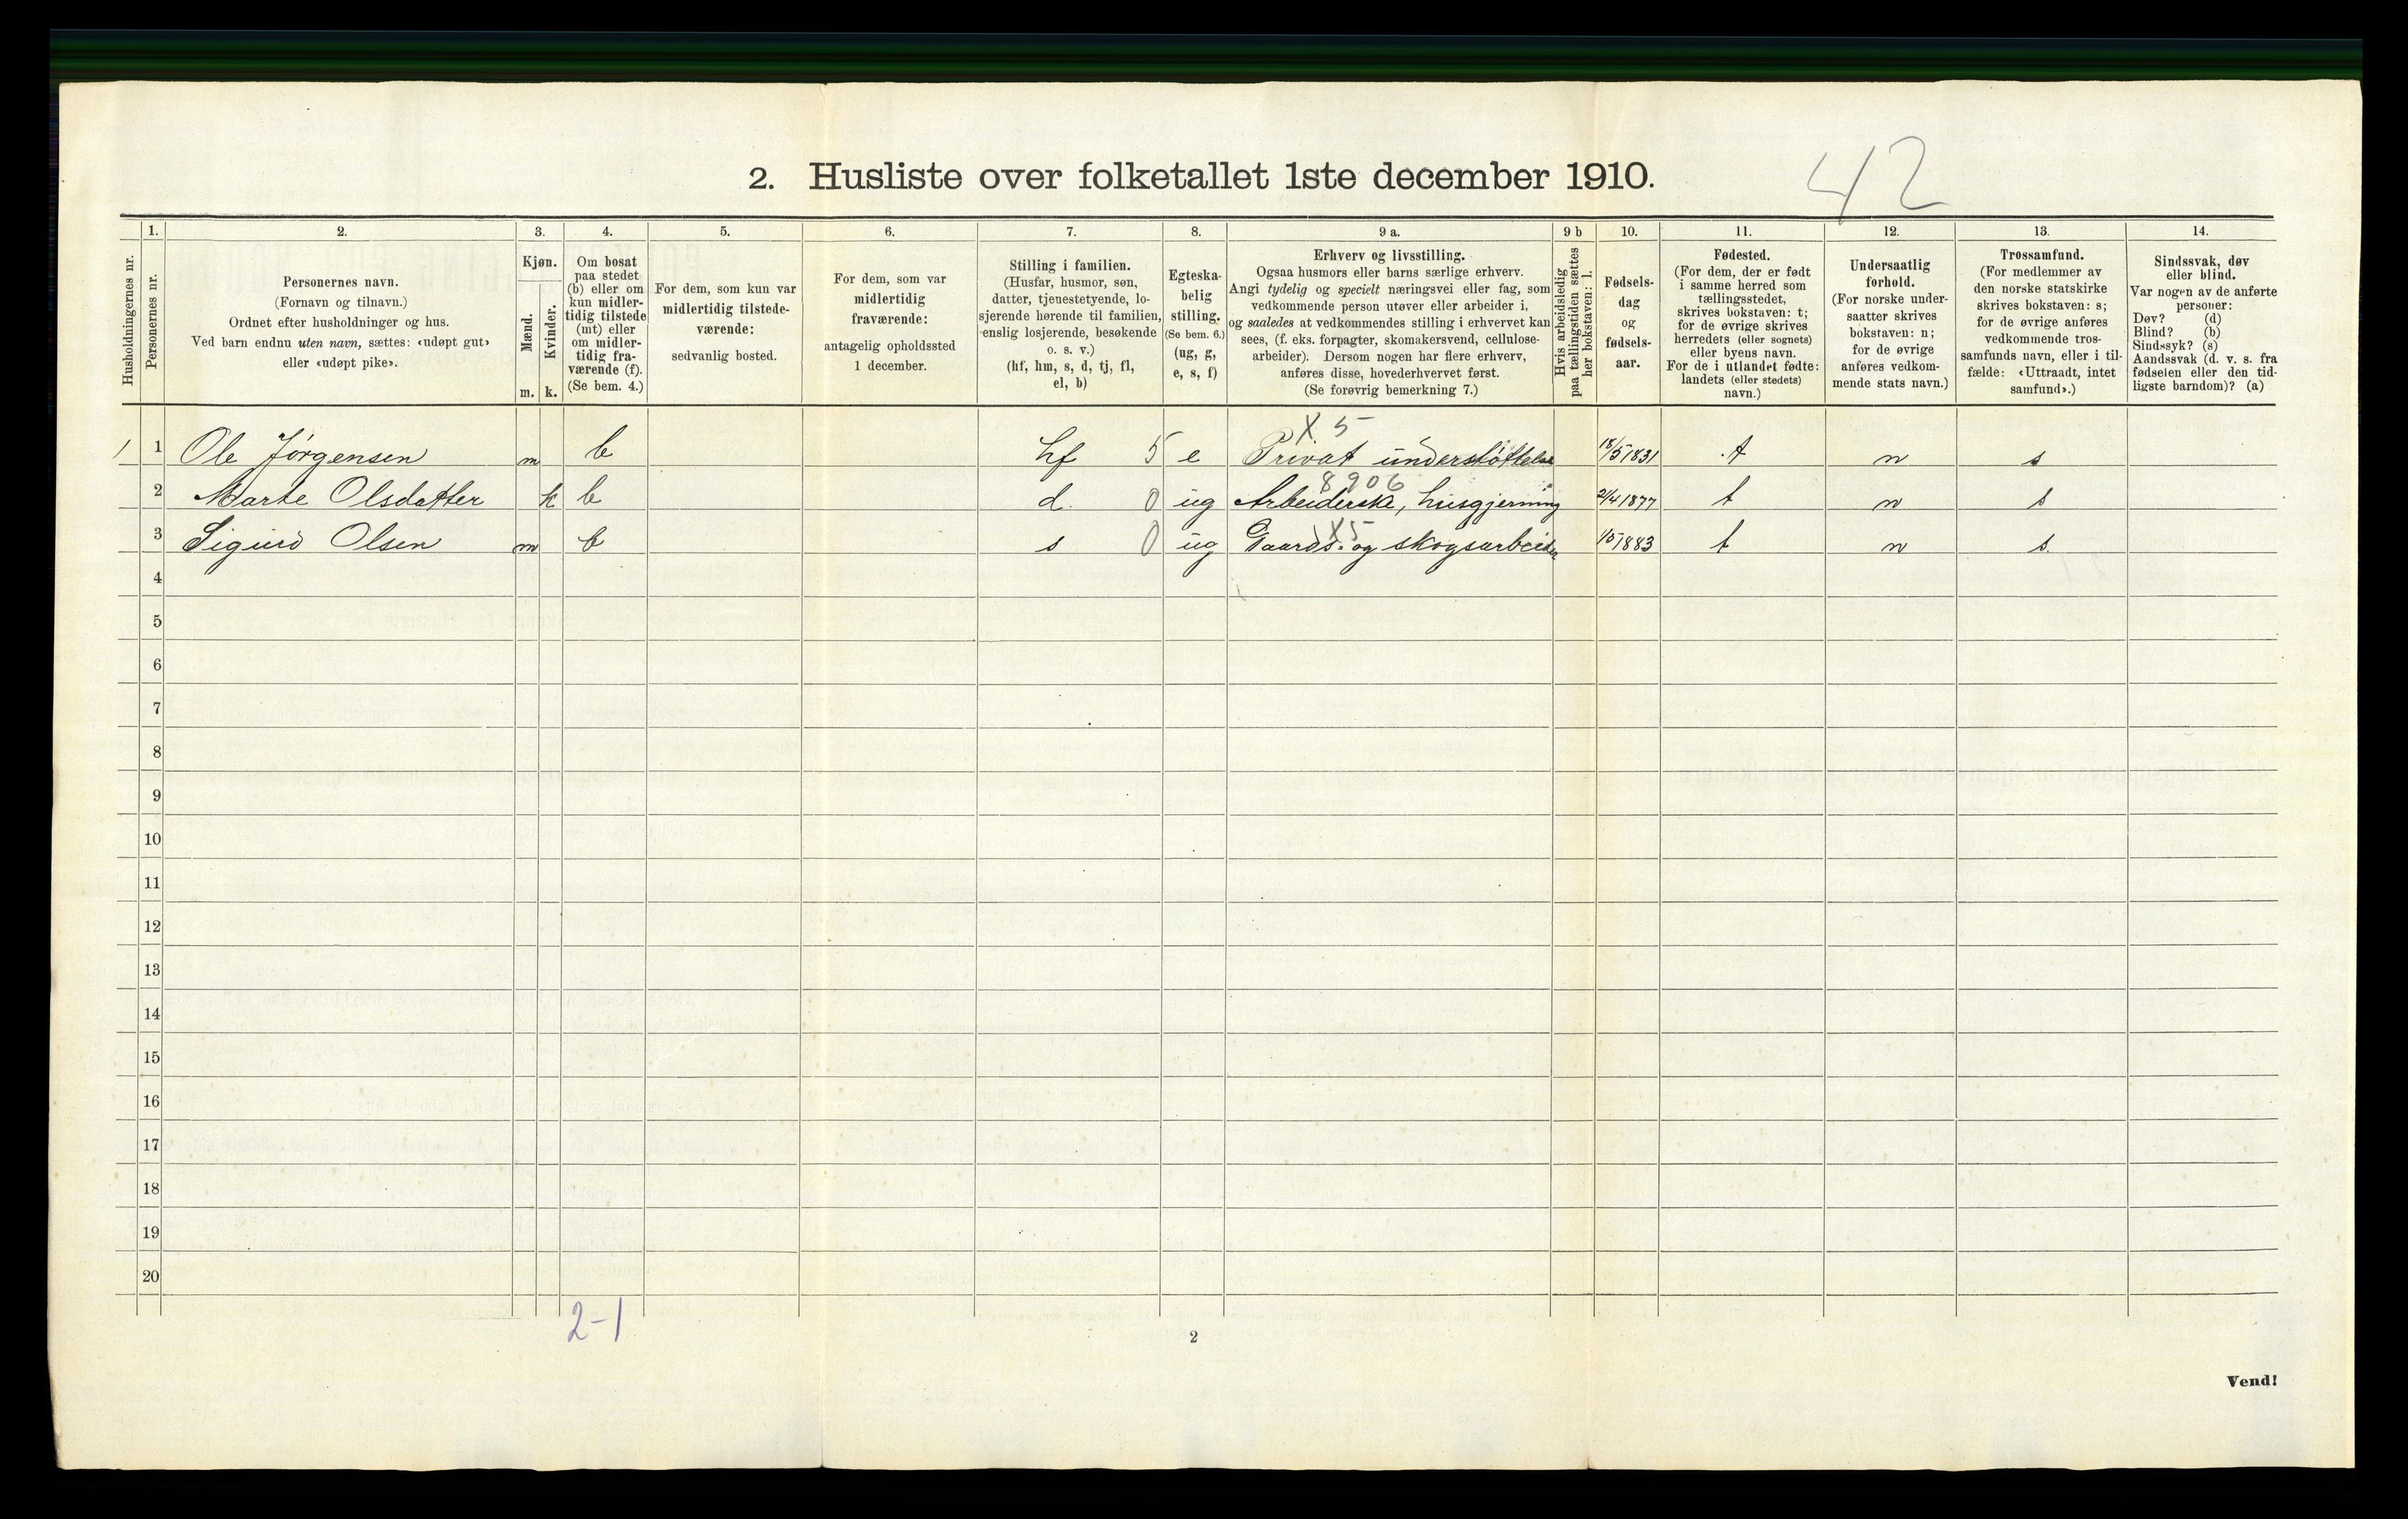 42
2. Husliste over folketallet 1ste december 1910.
Husholdningernes nr.
1.
Personernes nr.
2.
Personernes navn.
(Fornavn og tilnavn.)
Ordnet efter husholdninger og hus.
Ved barn endnu uten navn, sættes: «udøpt gut»
eller «udøpt pike».
3.
Kjøn.
Mænd.
Kvinder.
m. k.
4.
Om bosat
paa stedet
(b) eller om
kun midler-
tidig tilstede
(mt) eller
om midler-
tidig fra-
værende (f).
(Se bem. 4.)
5.
For dem, som kun var
midlertidig tilstede-
værende:
sedvanlig bosted.
6.
For dem, som var
midlertidig
fraværende:
antagelig opholdssted
1 december.
7.
Stilling i familien.
(Husfar, husmor, søn,
datter, tjenestetyende, lo-
sjerende hørende til familien,
enslig losjerende, besøkende
o. s. v.)
(hf, hm, s, d, tj, fl,
el, b)
8.
Egteska-
belig
stilling.
(Se bem. 6.)
(ug, g,
e, s, f)
9 a.
Erhverv og livsstilling.
Ogsaa husmors eller barns særlige erhverv.
Angi tydelig og specielt næringsvei eller fag, som
vedkommende person utøver eller arbeider i,
og saaledes at vedkommendes stilling i erhvervet kan
sees, (f. eks. forpagter, skomakersvend, cellulose-
arbeider). Dersom nogen har flere erhverv,
anføres disse, hovederhvervet først.
(Se forøvrig bemerkning 7.)
9 b
Hvis arbeidsledig
paa tællingstiden sættes
her bokstaven: l.
10.
Fødsels-
dag
og
fødsels-
aar.
11.
Fødested.
(For dem, der er født
i samme herred som
tællingsstedet,
skrives bokstaven: t;
for de øvrige skrives
herredets (eller sognets)
eller byens navn.
For de i utlandet fødte:
landets (eller stedets)
navn.)
12.
Undersaatlig
forhold.
(For norske under-
saatter skrives
bokstaven: n;
for de øvrige
anføres vedkom-
mende stats navn.)
13.
Trossamfund.
(For medlemmer av
den norske statskirke
skrives bokstaven: s;
for de øvrige anføres
vedkommende tros-
samfunds navn, eller i til-
fælde: «Uttraadt, intet
samfund».)
14.
Sindssvak, døv
eller blind.
Var nogen av de anførte
personer:
Døv? (d)
Blind? (b)
Sindssyk? (s)
Aandssvak (d. v. s. fra
fødselen eller den tid-
ligste barndom)? (a)
X 5
1 1 Ole Jørgensen m b hf 5 e Privat understøttelse 18/5 1831 t n s
8906
2 Marte Olsdatter k b d. 0 ug Arbeiderske, husgjerning 2/4 1877 t n s
X5
3 Sigurd Olsen m b s 0 ug Gaards- og skogsarbeider 1/5 1883 t n s.
4
5
6
7
8
9
10
11
12
13
14
15
16
17
18
19
20
2-1
2
Vend!